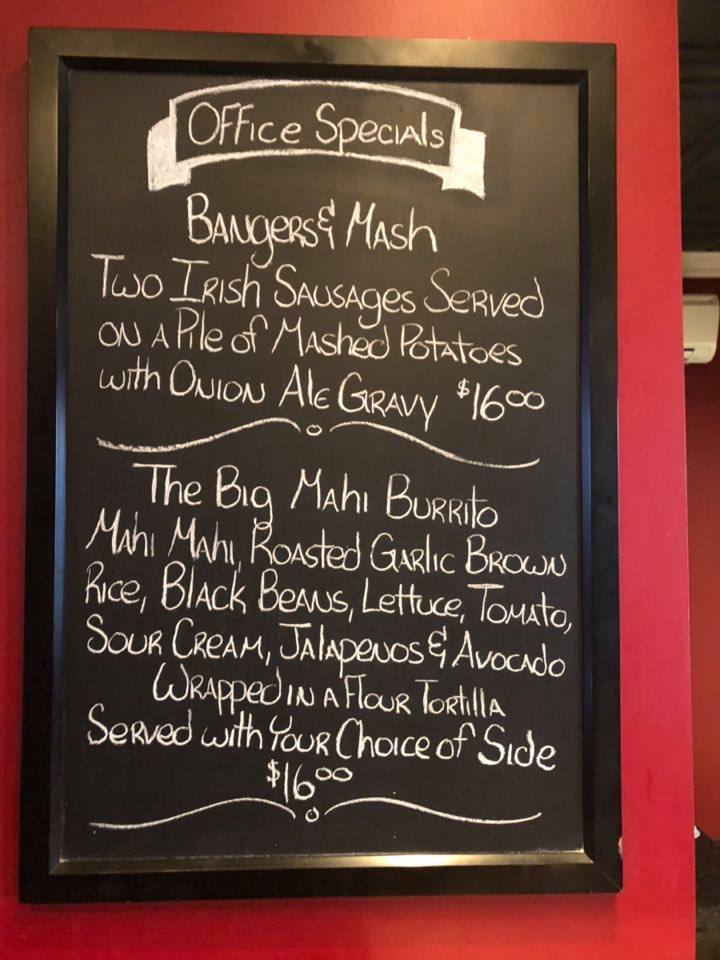 Office Specials
Bangers & Mash
Two Irish Sausages Served
on a Pile of Mashed Potatoes
with Onion Ale Gravy $16.00
The Big Mahi Burrito
Mahi Mahi, Roasted Garlic Brown
Rice, Black Beans, Lettuce, Tomato,
Sour Cream, Jalapenos & Avocado
Wrapped in a Flour Tortilla
Served with Your Choice of Side
$16.00